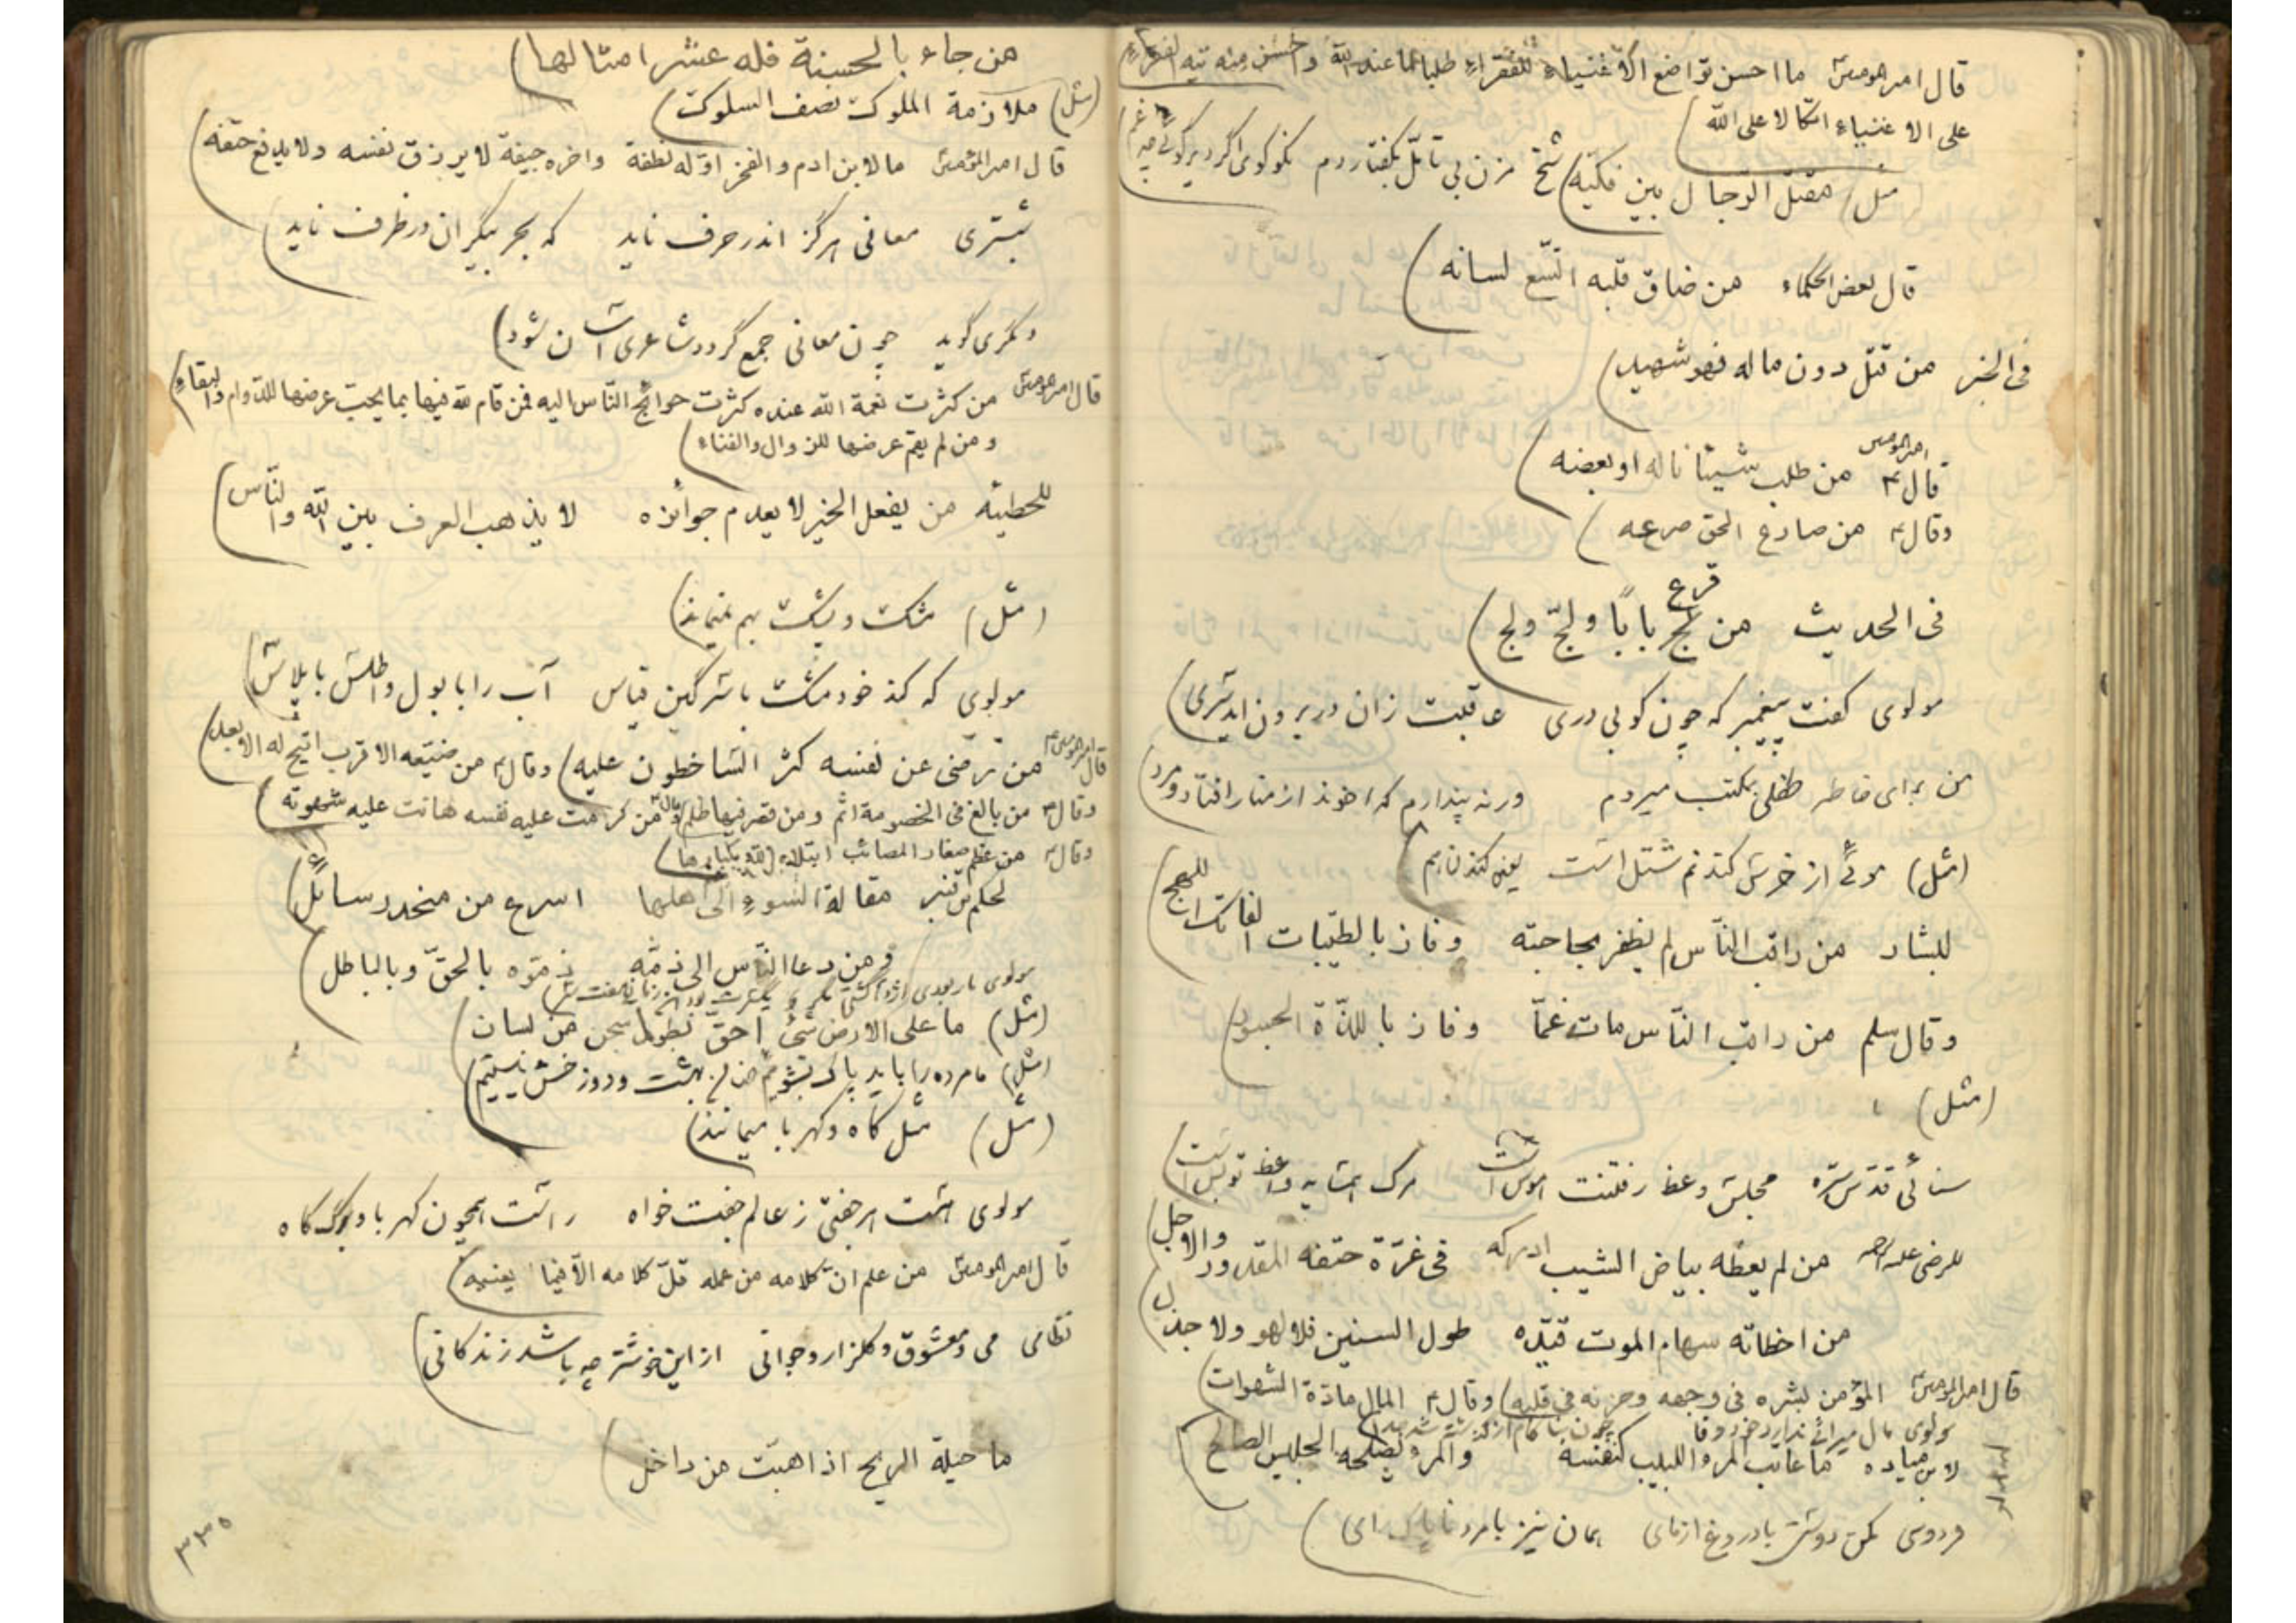 قال امیرالمومنین ما احسن تواضع الاغنیاء للفقراء طلبا لما عند الله و احسن منه تیه الفقراء
علی الاغنیاء اتکالا علی الله
مثل) مقتل الرجال بین فکیه) شیخ مزن بی تأمل بگفتار دم نکو گوی اگر دیر گوئی چه غم)
قال بعض الحکماء من ضاق قلبه اتسع لسانه)
فی الخبر من قتل دون ماله فهو شهید)
قال امیرالمومنین ع من طلب شیئا ناله او بعضه)
وقال ع من صارع الحق صرعه)
فی الحدیث من قرع بابا و لجّ ولج)
مولوی گفت پیغمبر که چون کوبی دری عاقبت زان در برون اید سری)
من برای خاطر طفلی بمکتب میردم ورنه پندارم که اخوند از منار افتاد و مرد)
(مثل) موئی از خرس کندنم شتل است یعنی کندن هم)
للبشار من راقب الناس لم یظفر بحاجته وفاز بالطیبات الفاتک اللهج)
وقال سلم من راقب الناس مات غما وفاز باللذة الجسور)
(مثل)
سنائی قدس سره مجلس وعظ رفتنت هوس است مرک همسایه واعظ تو بس است)
للرضی علیه الرحمه من لم یعظه بیاض الشیب ادرکه فی غرة حتفه المقدور والاجل)
من اخطاته سهام الموت قیده طول السنین فلا لهو ولا جذل)
قال امیرالمومنین المؤمن بشره فی وجهه وحزنه فی قلبه) وقال ع المال مادة الشهوات)
مولوی مال میراثی ندارد خود وفا چون بناکام از گذشته شد جدا)
لابن میاده ما عاتب المرء اللبیب کنفسه والمرء یصلحه الجلیس الصالح)
فردوسی مکن دوستی با دروغ ازمای همان نیز با مرد ناپاک رای)
من جاء بالحسنة فله عشر امثالها)
(مثل) ملازمة الملوک نصف السلوک)
قال امیرالمؤمنین ما لابن ادم و الفخر اوله نطفة واخره جیفة لا یرزق نفسه ولا یدفع حتفه)
شبستری معانی هرگز اندر حرف ناید که بحر بیکران در ظرف ناید)
دیگری گوید چون معانی جمع گردد شاعری آسان شود)
قال امیرالمومنین من کثرت نعمة الله عنده کثرت حوائج الناس الیه فمن قام لله فیها بما یجب عرضها للدوام والبقاء)
و من لم یقم عرضها للزوال والفناء)
للحطیئه من یفعل الخیر لا یعدم جوائزه لا یذهب العرف بین الله والناس)
(مثل) مشک و پشک بهم نیماند)
مولوی که کند خود مشک با سرگین قیاس آب را با بول و اطلس با پلاس)
قال امیرالمومنین من رضی عن نفسه کثر الساخطون علیه) وقال ع من ضیعه الاقرب اتیح له الابعد)
وقال ع من بالغ فی الخصومة اثم ومن قصر فیها ظلم) وقال ع من کرمت علیه نفسه هانت علیه شهوته)
وقال ع من عظم صغار المصائب ابتلاه الله بکبارها)
لحکم بن قنبر مقالة السوء الی اهلها اسرع من منحدر سائل)
ومن دعا الناس الی ذمه ذموه بالحق وبالباطل)
(مثل) ما علی الارض شیء احق بطول سجن من لسان)
(مثل) ما مرده را باید پاک بشوئیم ضامن بهشت و دوزخش نیستیم)
(مثل) مثل کاه و کهربا میمانند)
مولوی هست هر جفتی ز عالم جفت خواه راست همچون کهربا و برگ کاه
قال امیرالمومنین من علم ان کلامه من عمله قل کلامه الا فیما یعنیه)
نظامی می و معشوق و گلزار و جوانی ازاین خوشتر چه باشد زندگانی)
ما حیلة الریح اذا هبت من داخل)
۳۳۵